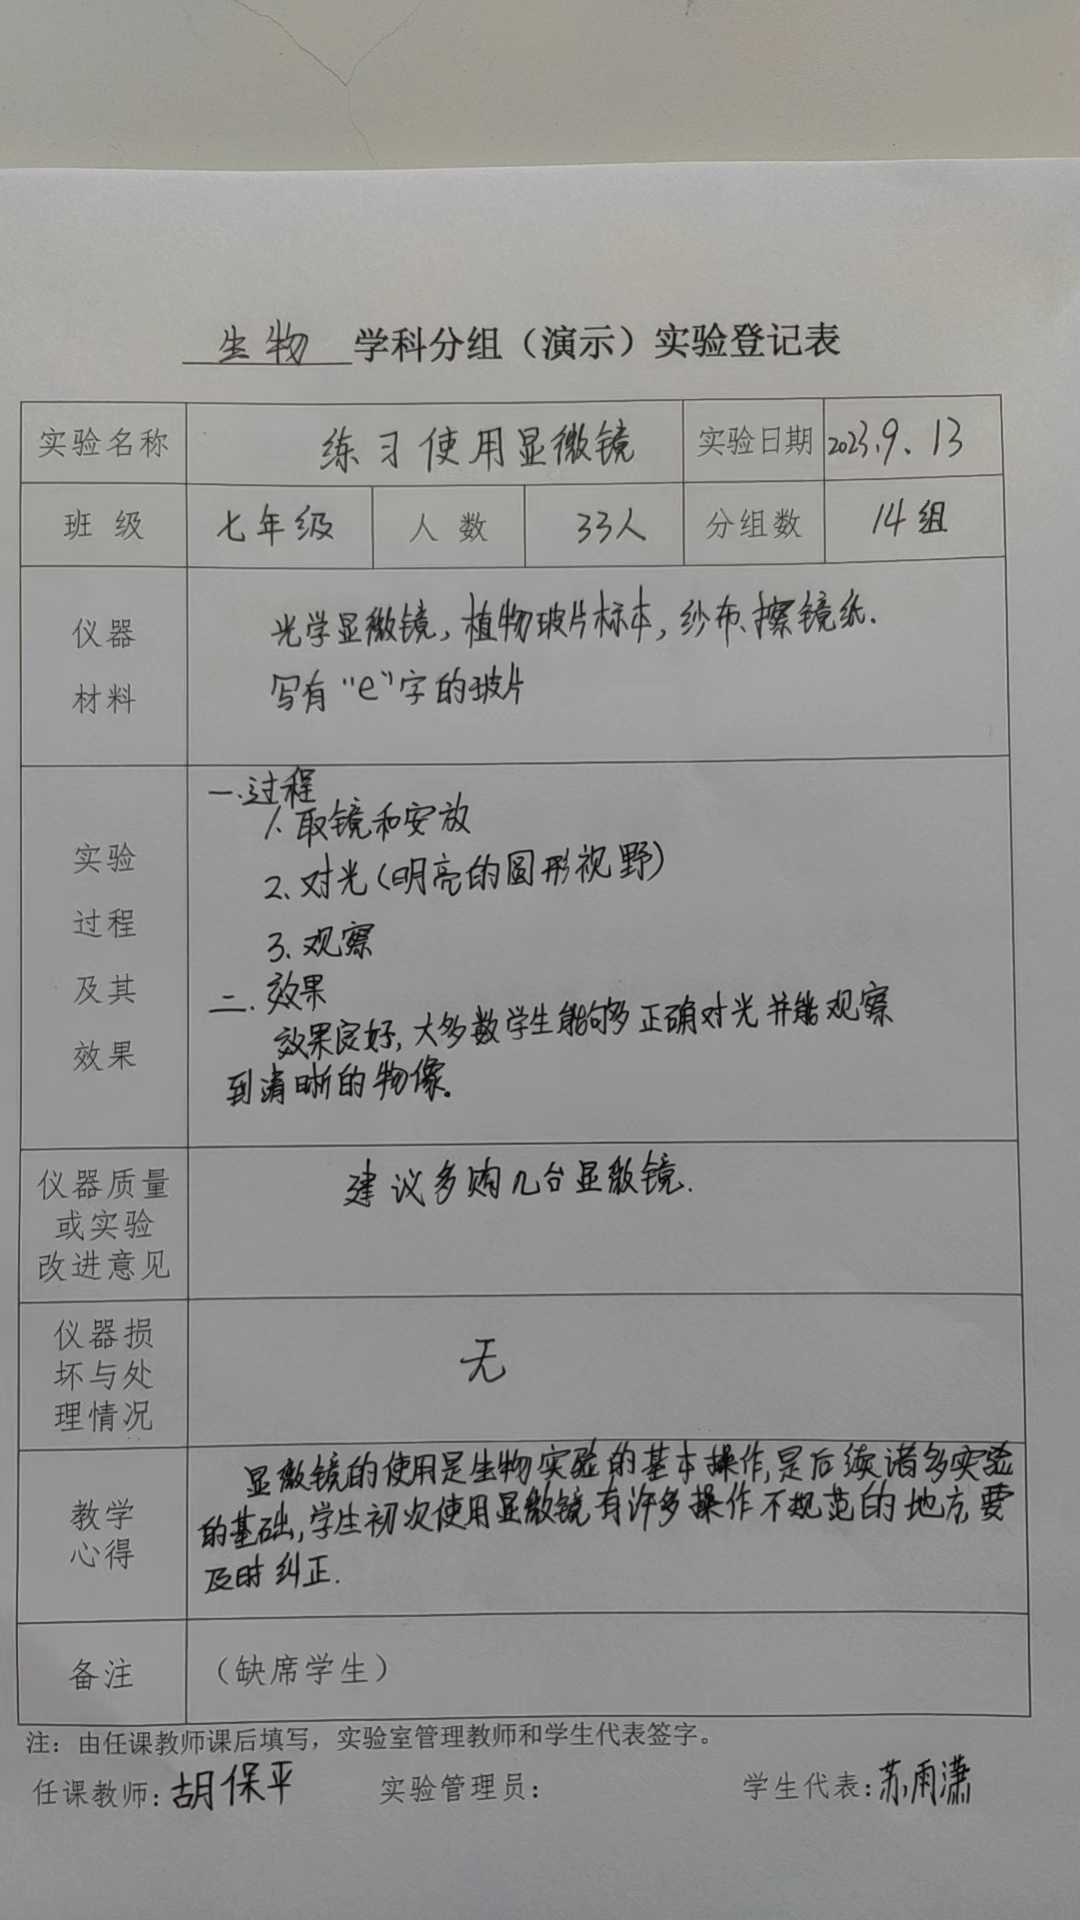 生物 学科分组（演示）实验登记表
实验名称 练习使用显微镜 实验日期 2023.9.13
班级 七年级 人数 33人 分组数 14组
仪器
材料
光学显微镜，植物玻片标本，纱布、擦镜纸.
写有“e”字的玻片
实验
过程
及其
效果
一.过程
1. 取镜和安放
2. 对光(明亮的圆形视野)
3. 观察
二. 效果
效果良好,大多数学生能够多正确对光并能观察
到清晰的物像。
仪器质量
或实验
改进意见
建议多购几台显微镜.
仪器损
坏与处
理情况
无
教学
心得
显微镜的使用是生物实验的基本操作,是后续诸多实验
的基础,学生初次使用显微镜有许多操作不规范的地方,要
及时纠正.
备注 （缺席学生）
注：由任课教师课后填写，实验室管理教师和学生代表签字。
任课教师: 胡保平 实验管理员: 学生代表: 苏雨潇